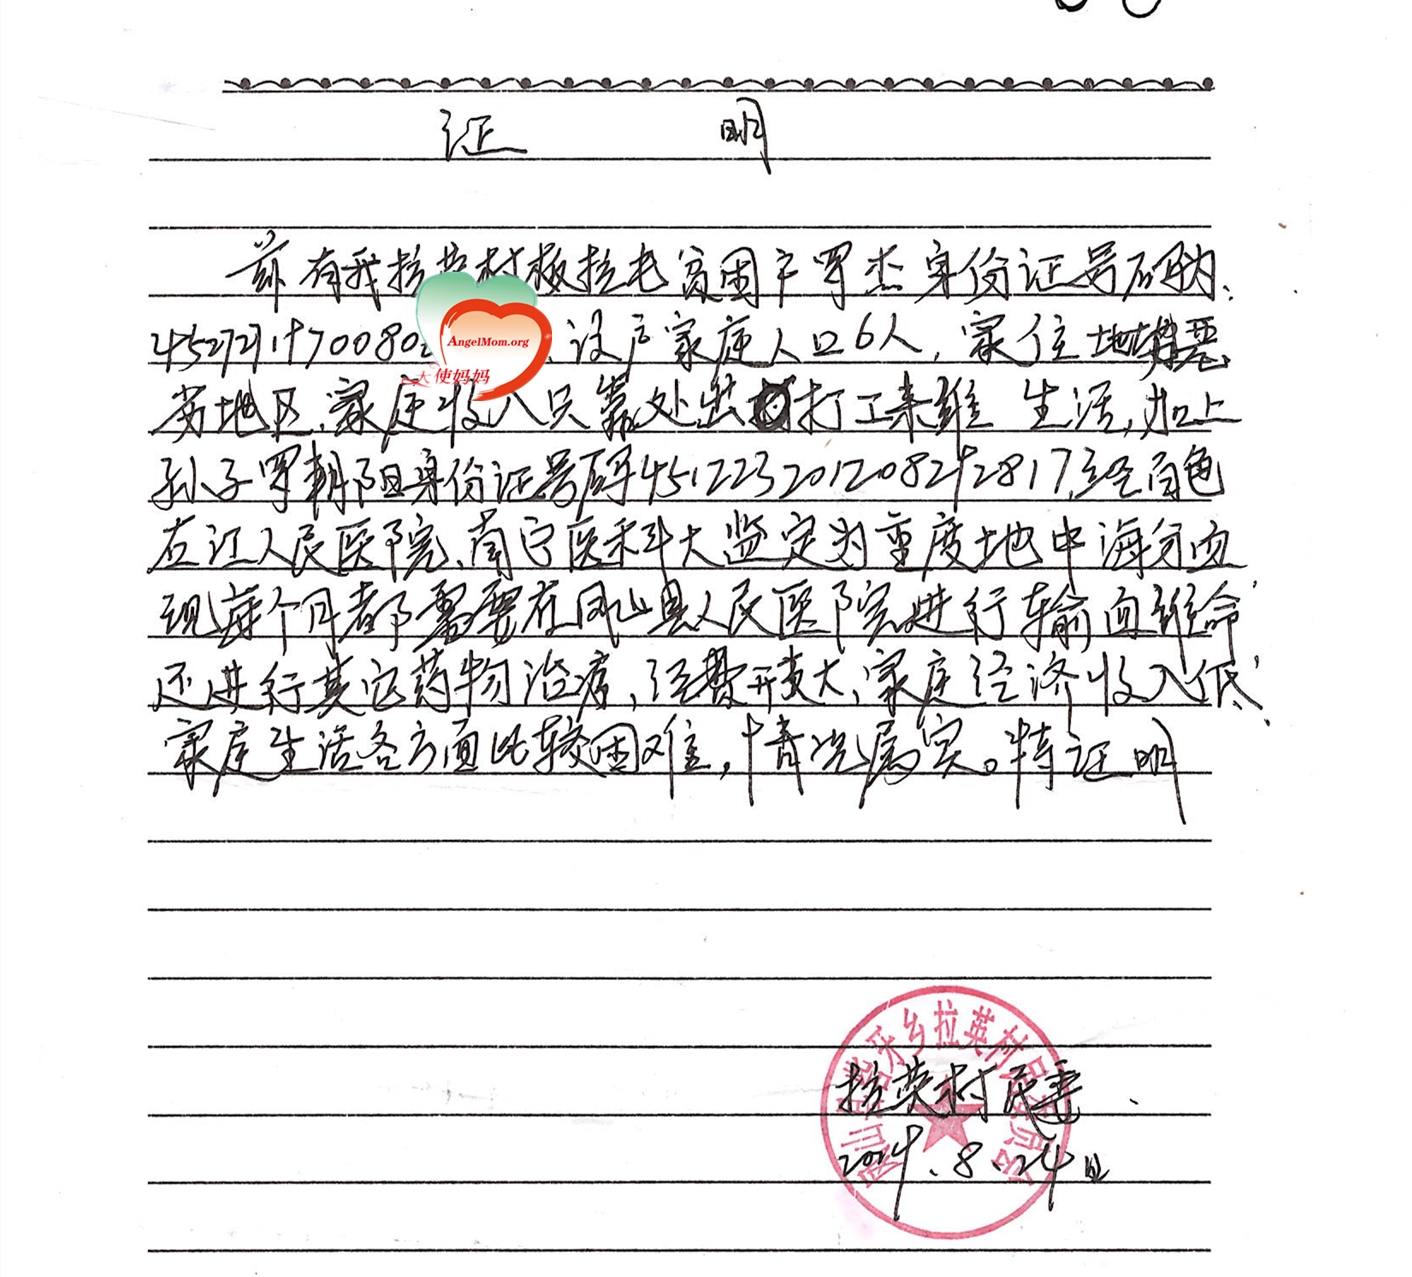 证 明
兹有我拉英村板拉屯贫困户罗杰身份证号码为:
452721970080
AngelMom.org
天使妈妈
,该户家庭人口6人,家住地
劳地区,家庭收入只靠处出打工来维 生活,加上
孙子罗朝阳身份证号码451223201208292817,经百色
右江人民医院、南宁医科大监定为重度地中海贫血
现每个月都需要在凤山县人民医院进行输血维命,
还进行其它药物治疗,经费开支大,家庭经济收入低,
家庭生活各方面比较困难,情况属实。特证明
凤山县 牙乡拉英村民委员会
拉英村民委
2014.8.24日